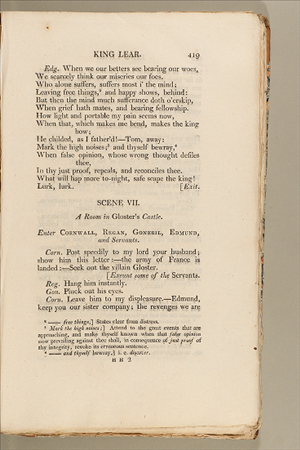 KING LEAR. 419
Edg. When we our betters see bearing our woes,
We scarcely think our miseries our foes.
Who alone suffers, suffers most i' the mind;
Leaving free things,² and happy shows, behind:
But then the mind much sufferance doth o'erskip,
When grief hath mates, and bearing fellowship.
How light and portable my pain seems now,
When that, which makes me bend, makes the king
bow;
He childed, as I father'd!—Tom, away:
Mark the high noises;³ and thyself bewray,⁴
When false opinion, whose wrong thought defiles
thee,
In thy just proof, repeals, and reconciles thee.
What will hap more to-night, safe scape the king!
Lurk, lurk. [Exit.
SCENE VII.
A Room in Gloster's Castle.
Enter CORNWALL, REGAN, GONERIL, EDMUND,
and Servants.
Corn. Post speedily to my lord your husband;
show him this letter:—the army of France is
landed:—Seek out the villain Gloster.
[Exeunt some of the Servants.
Reg. Hang him instantly.
Gon. Pluck out his eyes.
Corn. Leave him to my displeasure.—Edmund,
keep you our sister company; the revenges we are
² —— free things,] States clear from distress.
³ Mark the high noises;] Attend to the great events that are
approaching, and make thyself known when that false opinion
now prevailing against thee shall, in consequence of just proof of
thy integrity, revoke its erroneous sentence.
⁴ —— and thyself bewray,] i. e. discover.